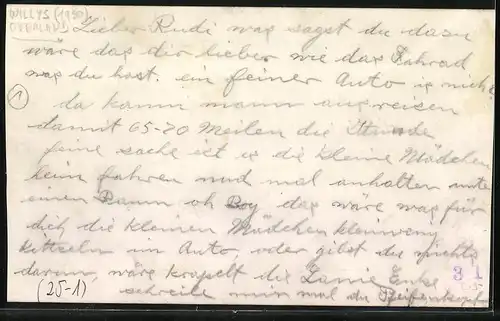 WILLYS (1930)
OVERLAND
Lieber Rudi was sagst du dazu
wäre das dir lieber wie das Fahrad
was du hast. ein feiner Auto is nicht
1
da kann mann ausreisen
damit 65-70 Meilen die Stunde
feine sache ist is die kleine Mädchen
beim fahren und mal anhalten unter
einen Baum oh Boy das wäre was für
dich die kleinen Mädchen kleinweng
kittzeln im Auto, oder gibst du nichts
darum, wäre die
schreibe mir mal du Pfeifenkopf
(25-1)
3 1